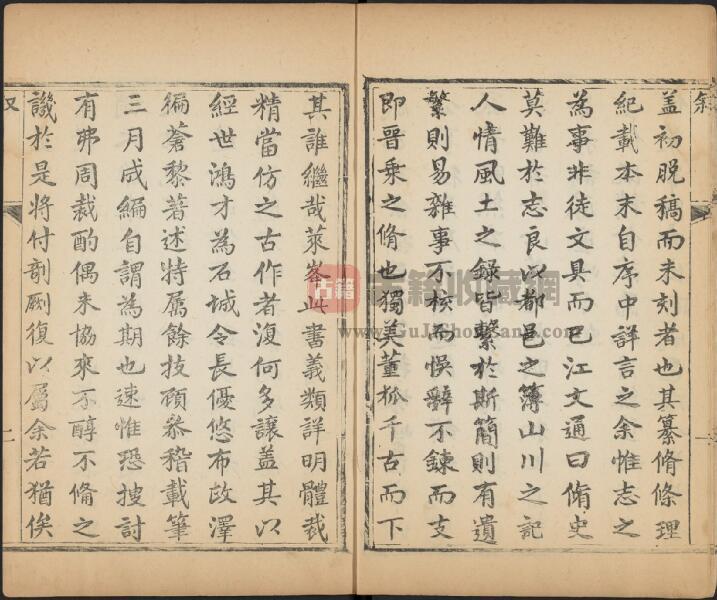 叙
盖初脱稿而未刻者也其纂脩條理
紀載本末自序中詳言之余惟志之
為事非徒文具而已江文通曰脩史
莫難於志良以都邑之簿山川之記
人情風土之錄皆繫於斯簡則有遺
繁則易雜事不核而悞辭不鍊而支
即晋乗之脩也獨美董狐千古而下
一
其誰繼哉萊峯此書義類詳明體裁
精當仿之古作者復何多讓盖其以
經世鴻才為石城令長優悠布政澤
徧蒼黎著述特属餘技顾叅稽載筆
三月成編自謂為期也速惟恐搜討
有弗周裁酌偶未協來不醇不脩之
譏於是将付剞劂復以屬余若猶俟
二
古籍
古籍收藏網
www.GuJiShouCang.com